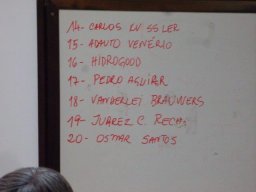 14- CARLOS
15- ADAUTO VENÉRIO
16- HIDROGOOD
17- PEDRO AGUIAR
18- VANDERLEI
19- JUAREZ C.
20- OSMAR SANTOS